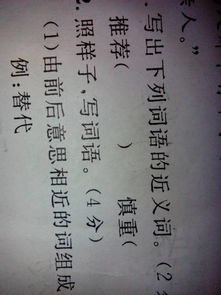 人。”
. 写出下列词语的近义词。(2
推荐(　　) 慎重(
2. 照样子,写词语。(4 分)
(1)由前后意思相近的词组成
例:替代